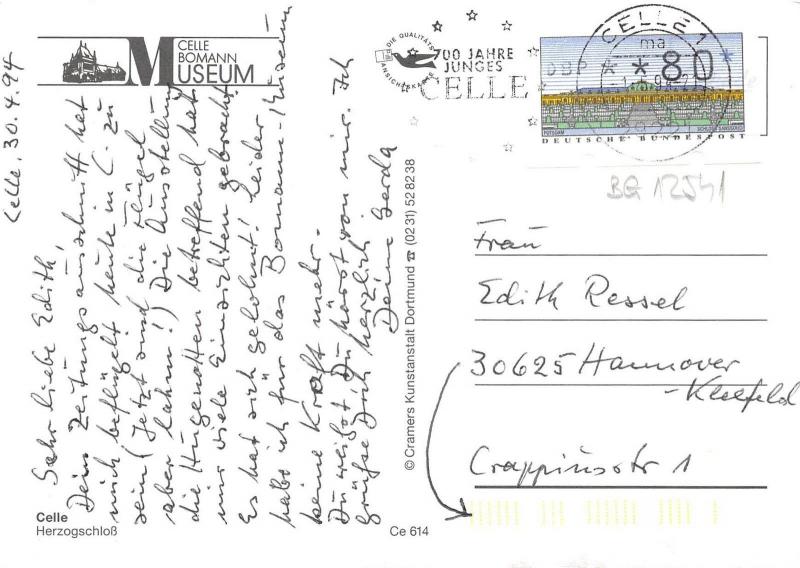 CELLE
BOMANN
MUSEUM
Celle, 30.4.94
Sehr liebe Edith,
Dein Zeitungsausschnitt hat
mich beflügelt heute in C. zu
sein (Jetzt sind die Flügel
aber lahm!) Die Ausstellung
die Hugenotten betreffend hat
mir viele Einsichten gebracht
Es hat sich gelohnt! Leider
habe ich für das Bomann-Museum
keine Kraft mehr.
Du weißt, Du hörst von mir. Ich
grüße Dich herzlich
Deine Gerda
Celle
Herzogschloß
Ce 614
© Cramers Kunstanstalt Dortmund ☎ (02 31) 52 82 38
DIE QUALITÄTS
ANSICHTSKARTE
700 JAHRE
JUNGES
CELLE
CELLE 1
ma
DBP
*80*
POTSDAM
SCHLOSS SANSSOUCI
DEUTSCHE BUNDESPOST
BG 12541
Frau
Edith Ressel
30625 Hannover
-Kleefeld
Crappiusstr 1